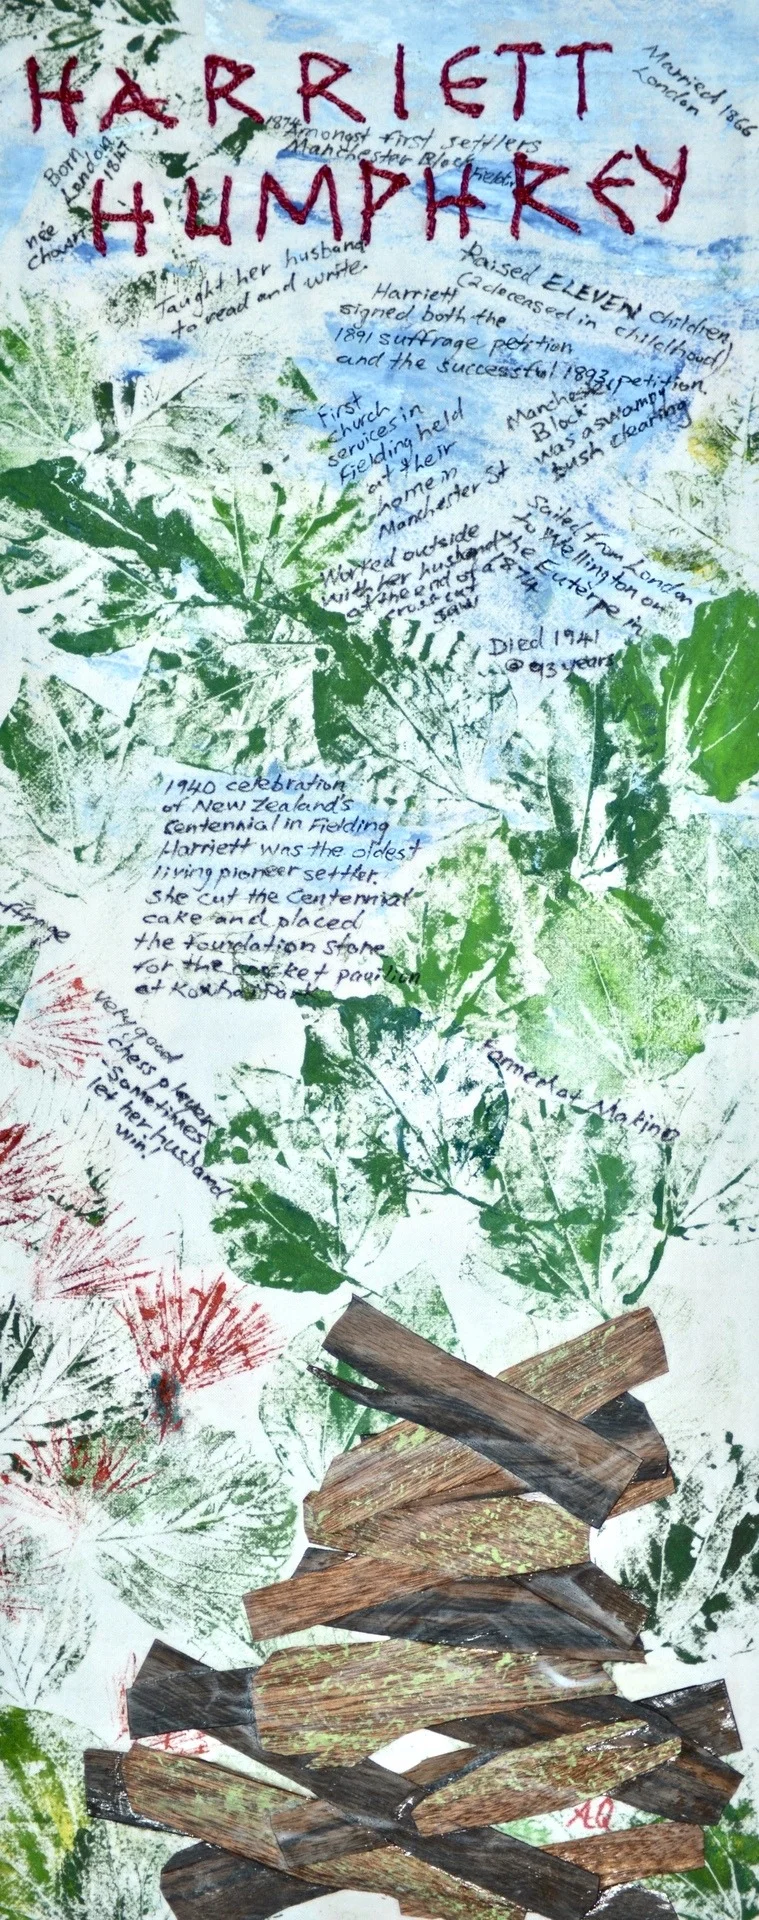 HARRIETT
HUMPHREY
Married 1866
London
Born
London
1847
née
1874
Amongst first settlers
Manchester Block
Fielding
Taught her husband
to read and write.
Raised ELEVEN children
(2 deceased in childhood)
Harriett
signed both the
1891 suffrage petition
and the successful 1893 petition.
First
church
services in
Fielding held
at their
home in
Manchester St
Manchester
Block
was a swampy
bush clearing
Worked outside
with her husband
at the end of a
cross cut
saw
Sailed from London
to Wellington on
the Euterpe in
1874
Died 1941
@ 93 years
1940 celebration
of New Zealand's
Centennial in Fielding
Harriett was the oldest
living pioneer settler.
She cut the Centennial
cake and placed
the foundation stone
for the cricket pavilion
at Kowhai Park
ffrage
very good
chess player
-Sometimes
let her husband
win!
Farmed at Makino
AQ